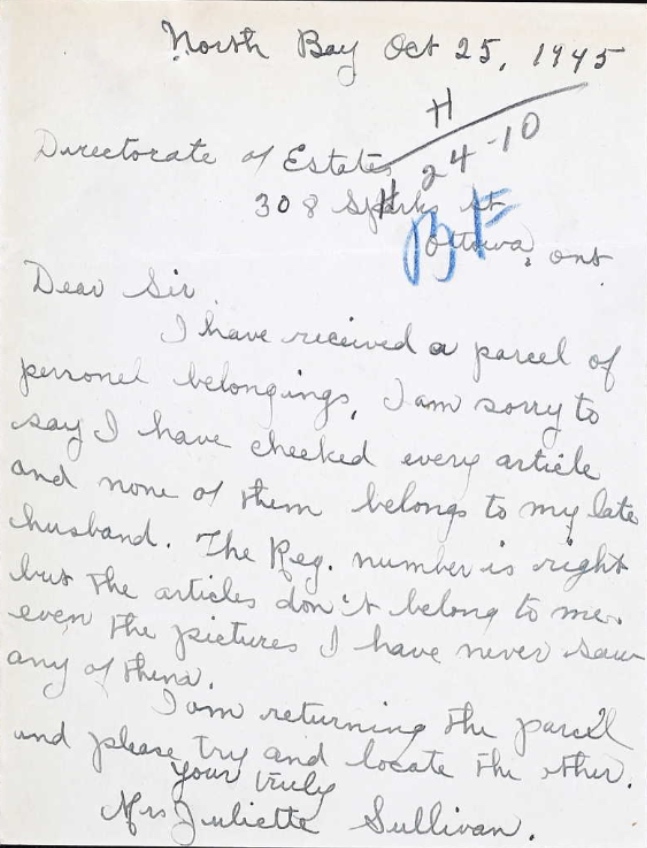 North Bay Oct 25, 1945
H
24-10
Directorate of Estates
308 Sparks st
BF
Ottawa, ont.
Dear Sir.
I have received a parcel of
personel belongings, I am sorry to
say I have checked every article
and none of them belongs to my late
husband. The Reg. number is right
but the articles don't belong to me.
even the pictures I have never saw
any of them.
I am returning the parcel
and please try and locate the other.
your truly
Mrs Juliette Sullivan.